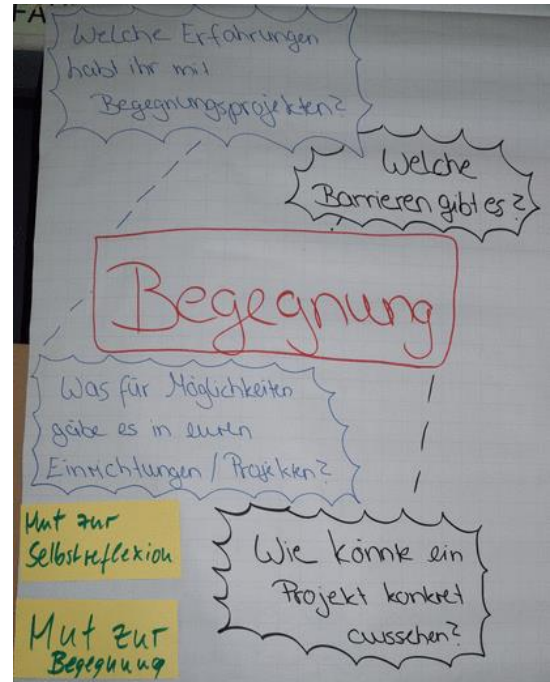 FA
Welche Erfahrungen
habt ihr mit
Begegnungsprojekten?
Welche
Barrieren gibt es?
Begegnung
Was für Möglichkeiten
gäbe es in euren
Einrichtungen / Projekten?
Mut zur
Selbstreflexion
Mut zur
Begegnung
Wie könnte ein
Projekt konkret
aussehen?